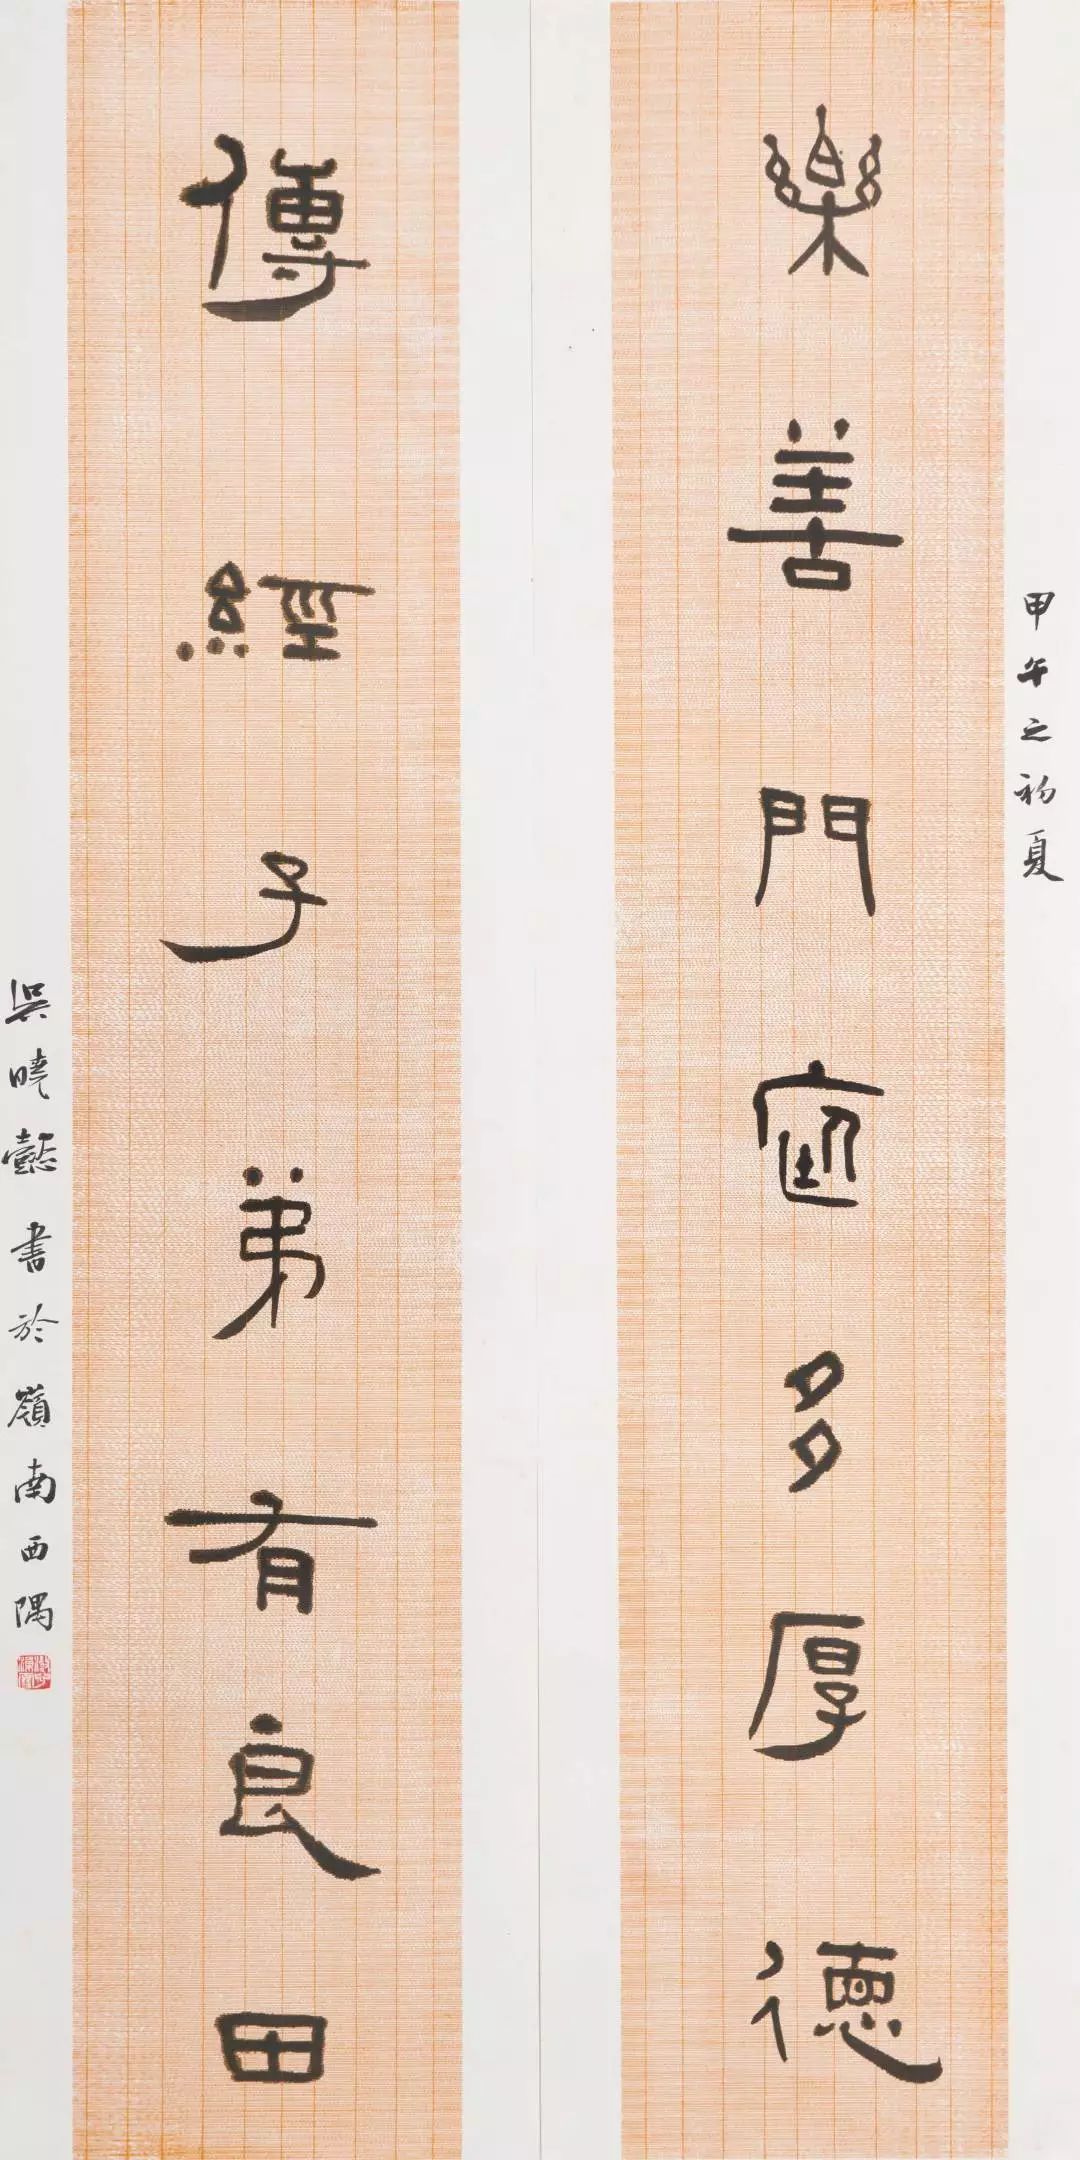 甲午之初夏
樂善門庭多厚德
傳經子弟有良田
吳曉懿書於嶺南西隅